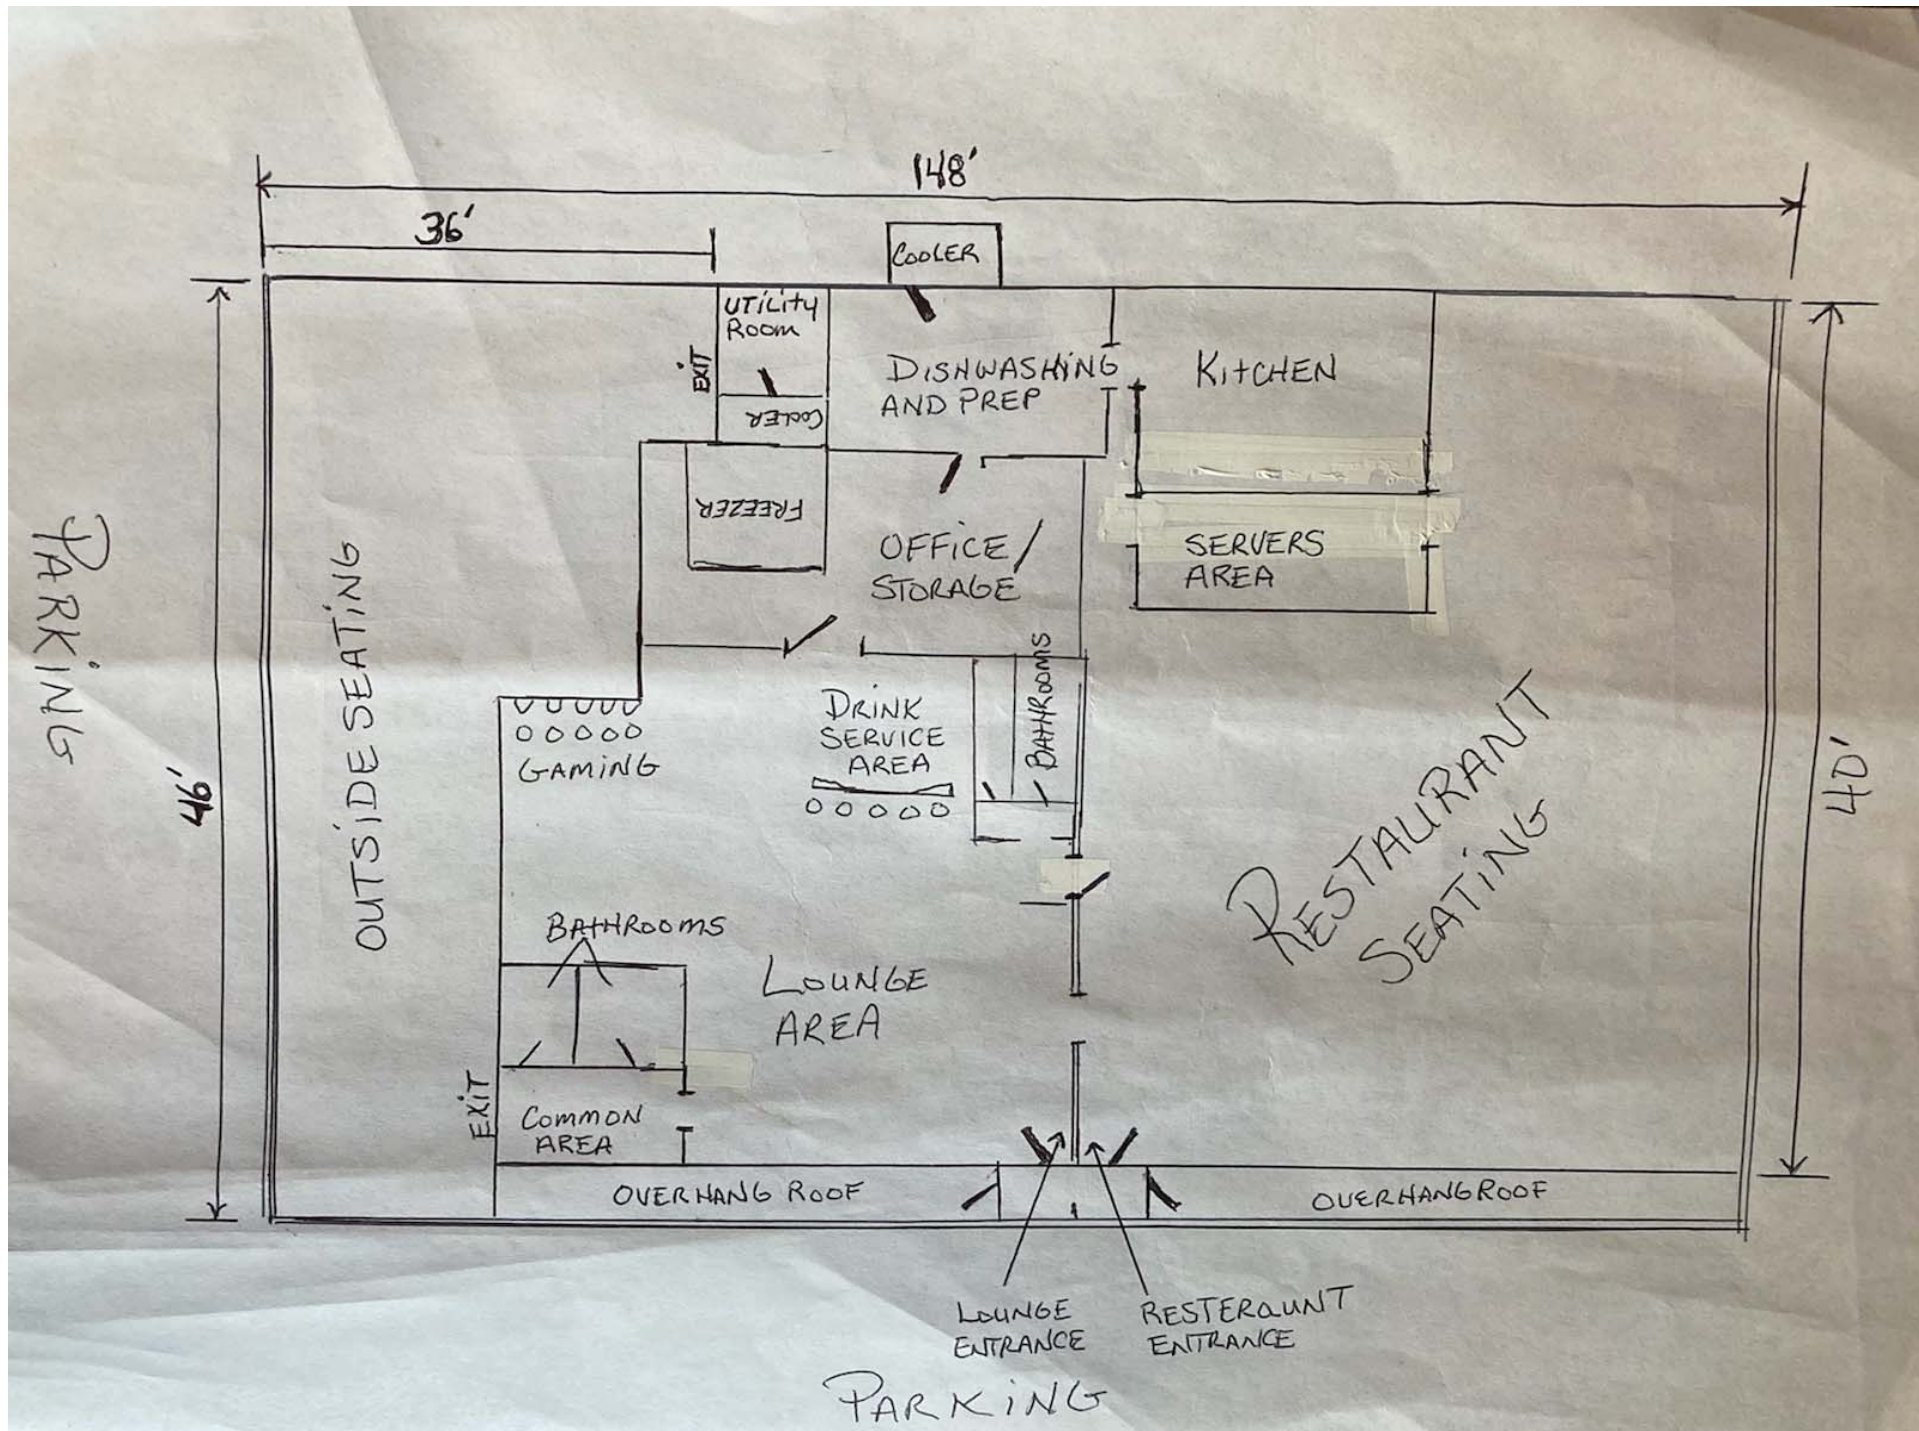 148'
36'
COOLER
UTILITY
ROOM
EXIT
COOLER
DISHWASHING
AND PREP
KITCHEN
FREEZER
OFFICE/
STORAGE
SERVERS
AREA
PARKING
46'
OUTSIDE SEATING
GAMING
DRINK
SERVICE
AREA
BATHROOMS
RESTAURANT
SEATING
40'
BATHROOMS
LOUNGE
AREA
EXIT
COMMON
AREA
OVERHANG ROOF
OVERHANG ROOF
LOUNGE
ENTRANCE
RESTERAUNT
ENTRANCE
PARKING